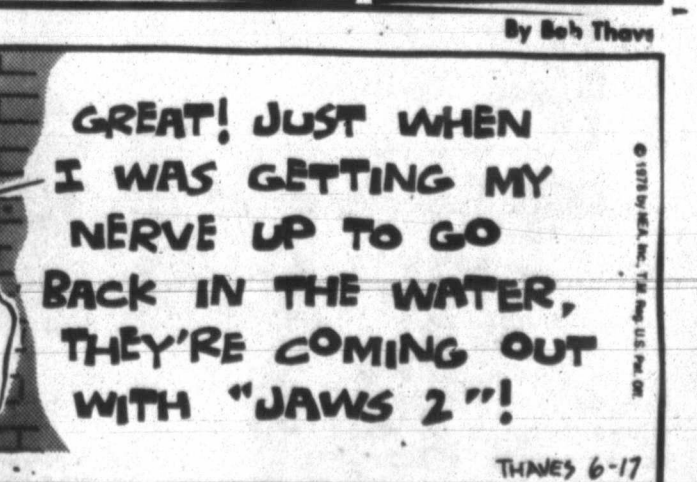 By Bob Thaves
GREAT! JUST WHEN
I WAS GETTING MY
NERVE UP TO GO
BACK IN THE WATER,
THEY'RE COMING OUT
WITH "JAWS 2"!
© 1978 by NEA, Inc., T.M. Reg. U.S. Pat. Off.
THAVES 6-17